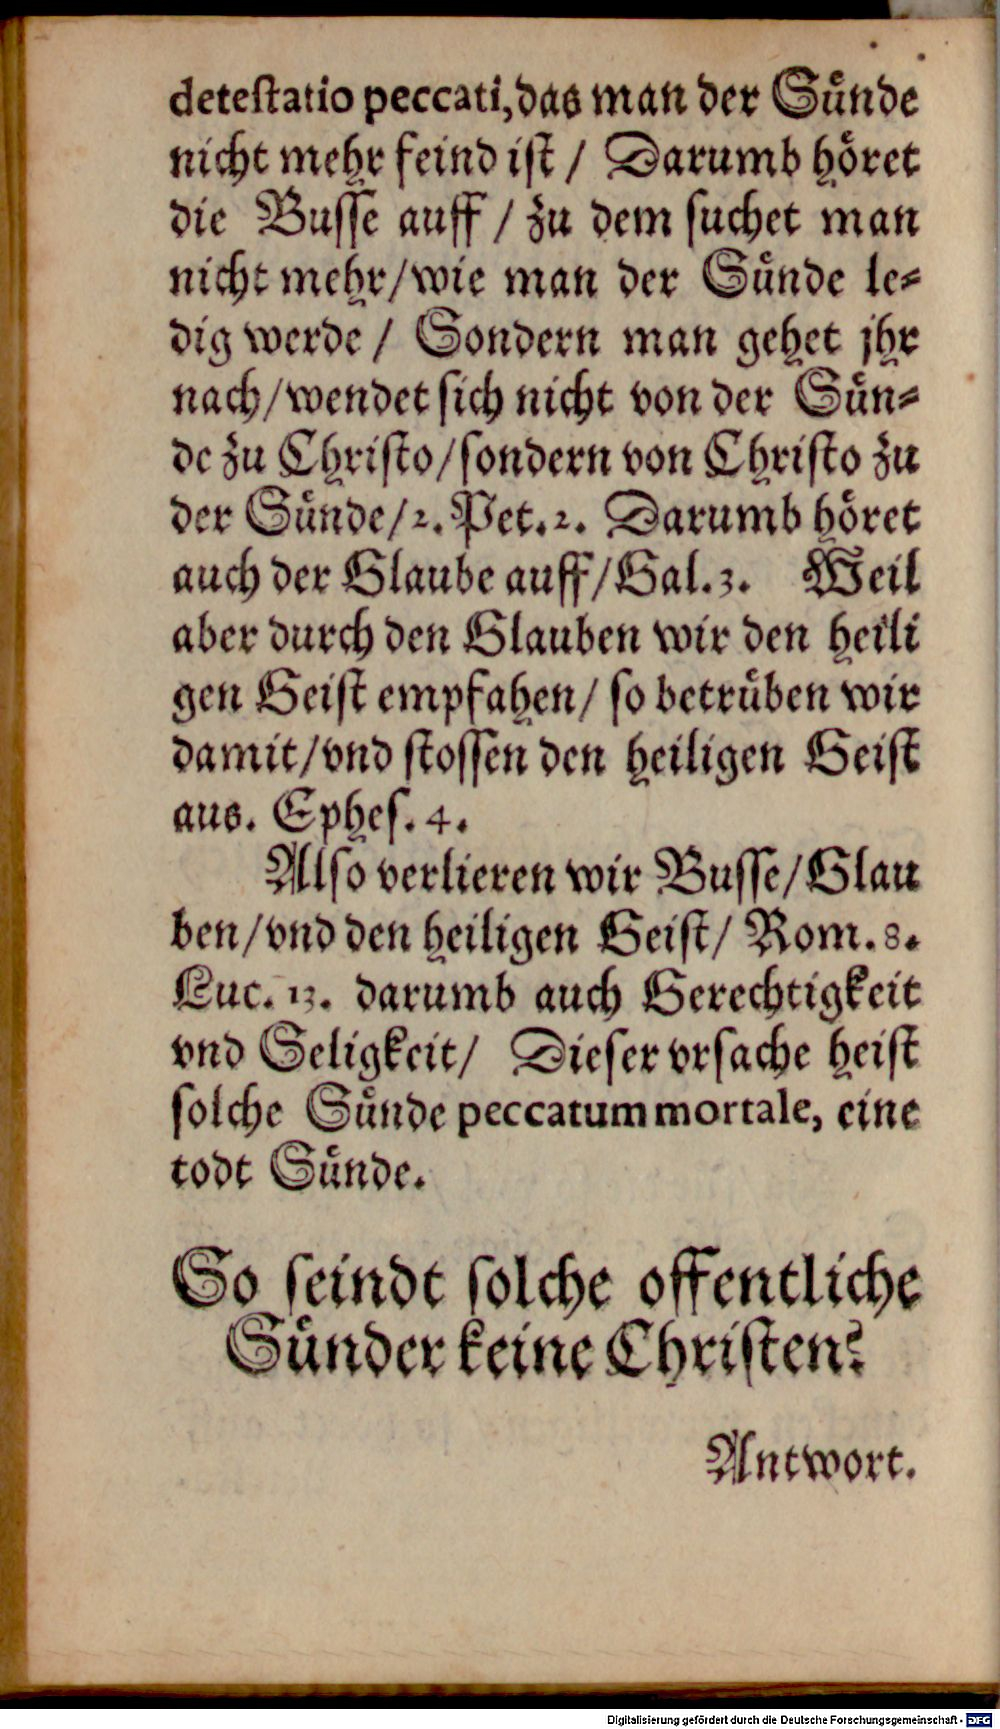 detestatio peccati, das man der Sünde
nicht mehr feind ist / Darumb höret
die Busse auff / zu dem suchet man
nicht mehr / wie man der Sünde le-
dig werde / Sondern man gehet jhr
nach / wendet sich nicht von der Sün-
de zu Christo / sondern von Christo zu
der Sünde / 2. Pet. 2. Darumb höret
auch der Glaube auff / Gal. 3. Weil
aber durch den Glauben wir den heili
gen Geist empfahen / so betrüben wir
damit / vnd stossen den heiligen Geist
aus. Ephes. 4.
Also verlieren wir Busse / Glau
ben / vnd den heiligen Geist / Rom. 8.
Luc. 13. darumb auch Gerechtigkeit
vnd Seligkeit / Dieser vrsache heist
solche Sünde peccatum mortale, eine
todt Sünde.
So seindt solche offentliche
Sünder keine Christen?
Antwort.
Digitalisierung gefördert durch die Deutsche Forschungsgemeinschaft - DFG